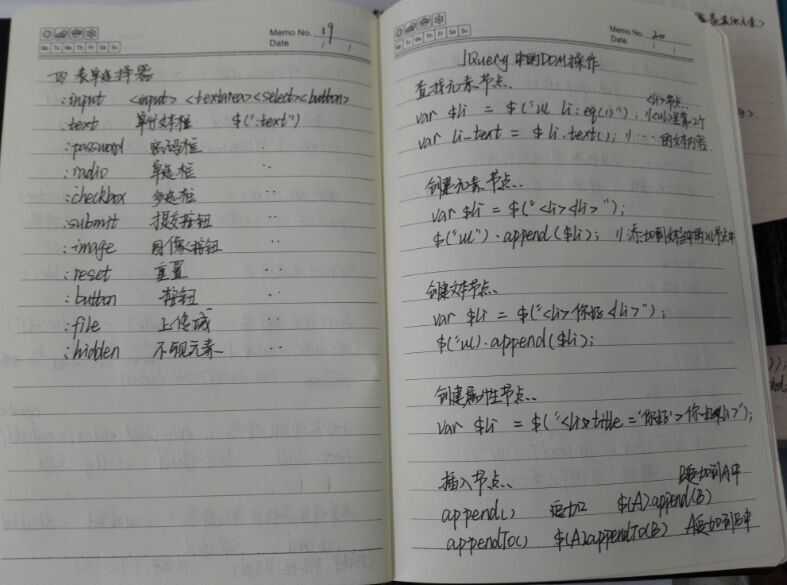 Memo No. 19
Mo Tu We Th Fr Sa Su
Date / /
四 表单选择器
:input <input> <textarea> <select> <button>
:text 单行文本框 $(":text")
:password 密码框 ··
:radio 单选框 ··
:checkbox 多选框 ··
:submit 提交按钮 ··
:image 图像按钮 ··
:reset 重置 ··
:button 按钮 ··
:file 上传域 ··
:hidden 不可见元素 ··
Memo No. 20
Mo Tu We Th Fr Sa Su
Date / /
JQuery 中的DOM操作
查找元素节点..
<li>节点..
var $li = $("ul li:eq(1)"); //<ul>里第2个
var li_text = $li.text(); // ···· 的文本内容
创建元素节点..
var $li = $("<li><li>");
$("ul").append($li); //添加到
创建文本节点..
var $li = $("<li>你好<li>");
$("ul).append($li);
创建属性节点..
var $li = $("<li title='你好'>你好<li>");
插入节点..
B追加到A中
append() 追加 $(A).append(B)
appendTo() $(A)appendTo(B) A追加到B中